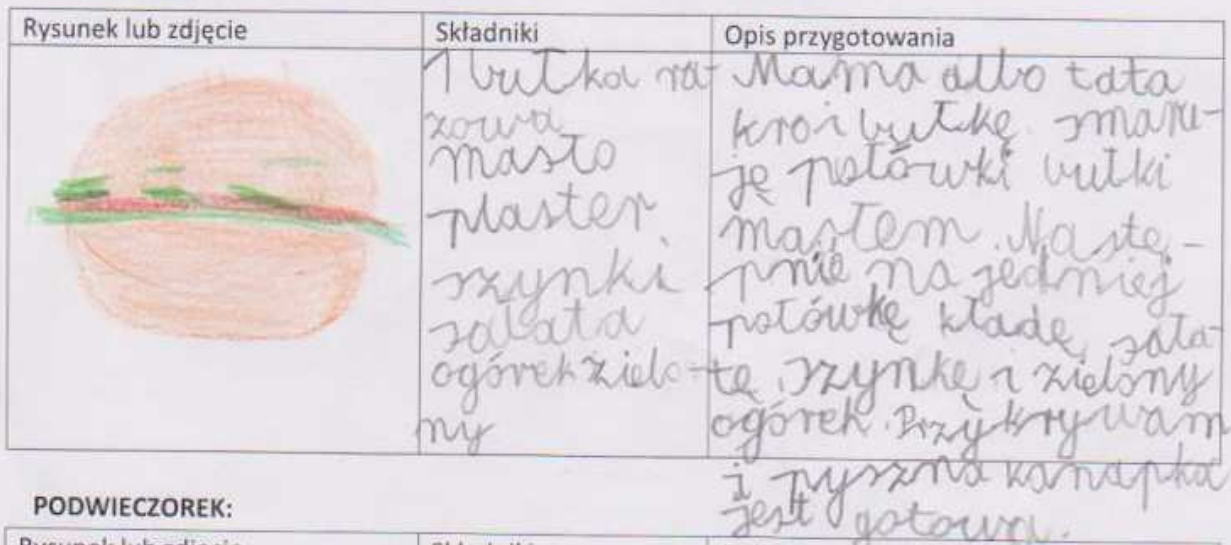 Rysunek lub zdjęcie
Składniki
Opis przygotowania
1 bułka ra-
zowa
masło
plaster
szynki
sałata
ogórek zielo-
ny
Mama albo tata
kroi bułkę. smaru-
ję połówki bułki
masłem. Nastę-
pnie na jedniej
połówkę kładę sała-
tę, szynkę i zielony
ogórek. Przykrywam
i pyszna kanapka
jest gotowa.
PODWIECZOREK:
Rysunek lub zdjęcie
Składniki